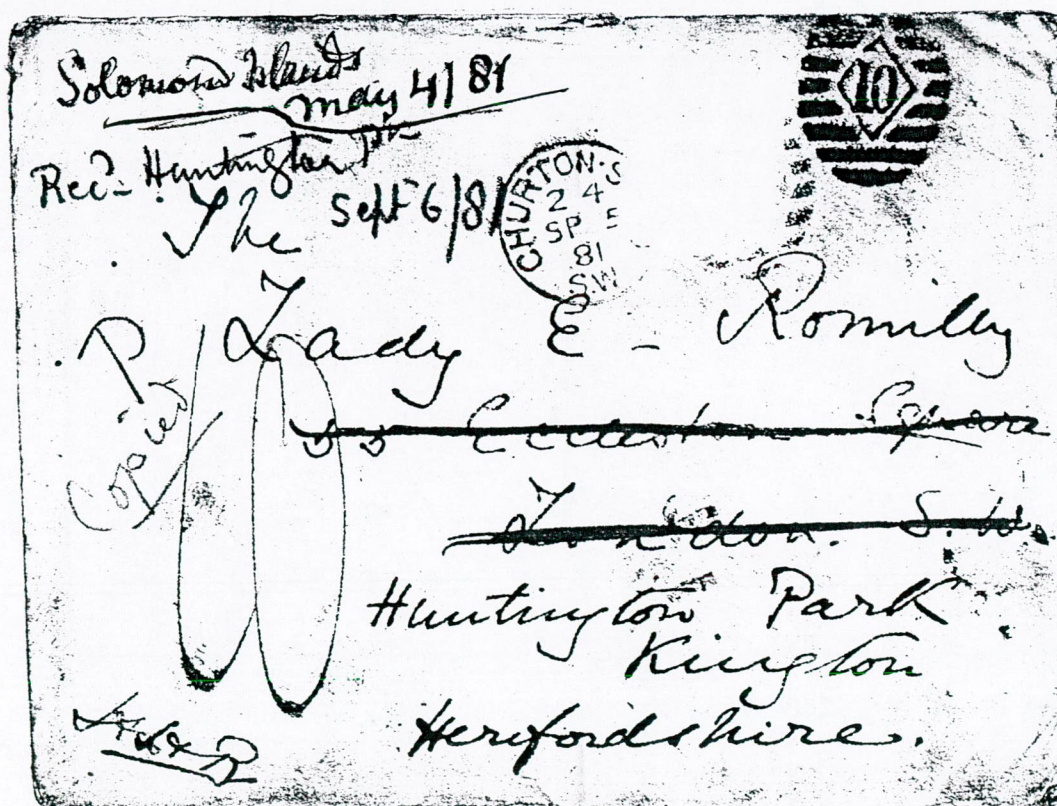 Solomon Islands
May 4/81
Rec'd Huntington Pk
Sept 6/81
CHURTON·S
2 4
SP 5
81
S.W
10
The
Lady E - Romilly
55 Eccleston Square
London. S.W.
Huntington Park
Kington
Herefordshire.
P
Copied